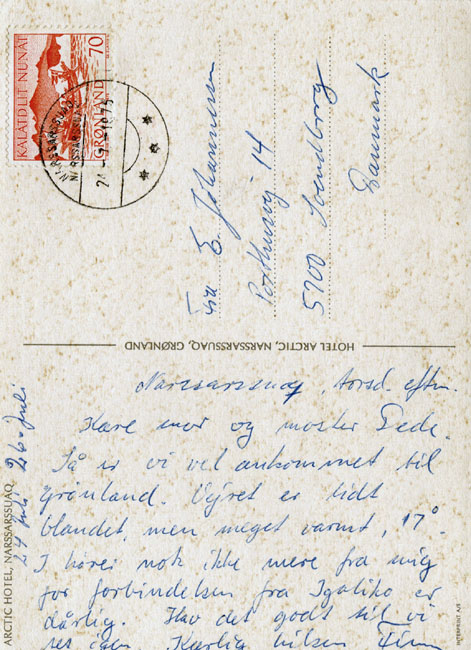 KALAALLIT NUNAT
70
GRØNLAND
NARSSARSSUAQ
NARSSARSSUAQ
Fru E. Johannesen
14
5700 Svendborg
Danmark
HOTEL ARCTIC, NARSSARSSUAQ, GRØNLAND
Narssarssuaq, torsd. eftm.
Kære mor og moster Dede.
Så er vi vel ankommet til
Grønland. Vejret er lidt
blandet, men meget varmt, 17°.
I hører nok ikke mere fra mig
for forbindelsen fra Igaliko er
dårlig. Hav det godt til vi
ses igen. Kærlig hilsen Finn
24 juli 26. juli
ARCTIC HOTEL, NARSSARSSUAQ
INTERPRINT A/S